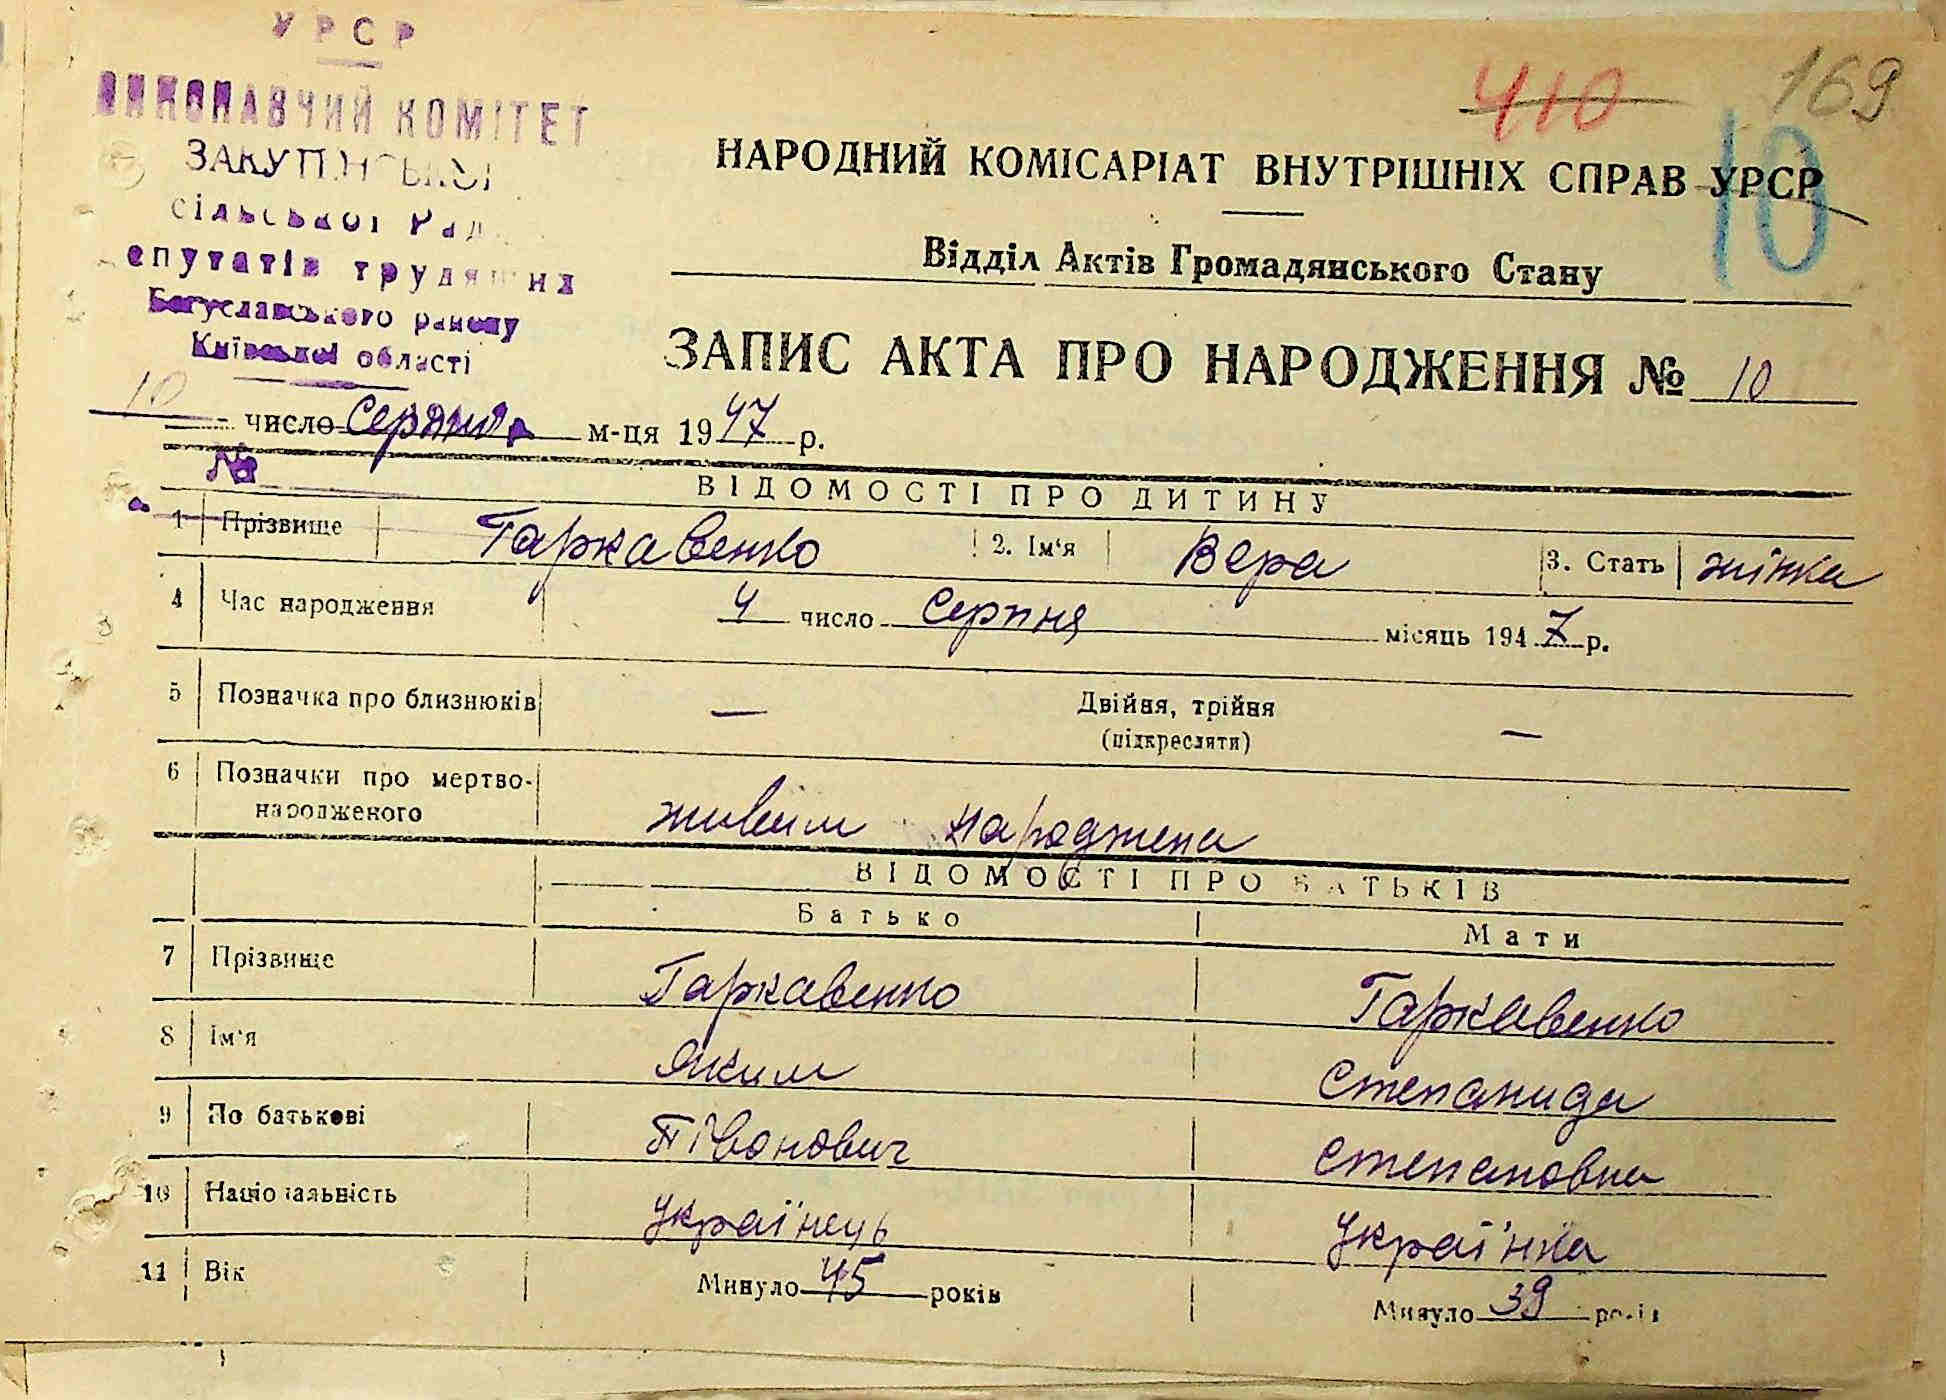 УРСР
ВИКОНАВЧИЙ КОМІТЕТ
сільської Рад
епутатів трудящих
Богуславського району
Київської області
410
169
10
НАРОДНИЙ КОМІСАРІАТ ВНУТРІШНІХ СПРАВ УРСР
Відділ Актів Громадянського Стану
ЗАПИС АКТА ПРО НАРОДЖЕННЯ № 10
10 число Серпня м-ця 1947 р.
№
ВІДОМОСТІ ПРО ДИТИНУ
1 Прізвище Гаркавенко 2. Ім'я Вера 3. Стать жінка
4 Час народження 4 число Серпня місяць 1947 р.
5 Позначка про близнюків — Двійня, трійня —
(підкреслити)
6 Позначки про мертво-
народженого живим народжена
ВІДОМОСТІ ПРО БАТЬКІВ
Батько Мати
7 Прізвище Гаркавенко Гаркавенко
8 Ім'я Яким Степанида
9 По батькові Півонович Степановна
10 Національність Українець Українка
11 Вік Минуло 45 років Минуло 39 років